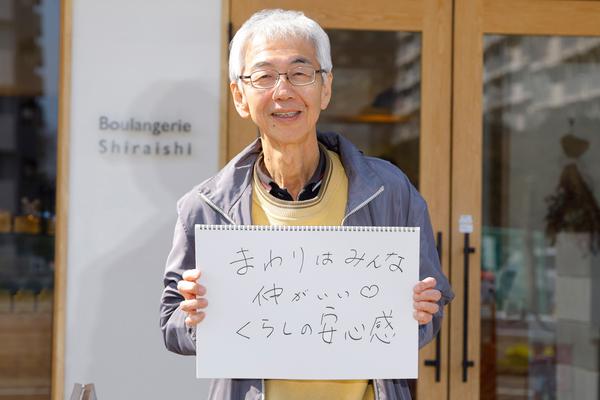 Boulangerie
Shiraishi
まわりはみんな
仲がいい♡
くらしの安心感